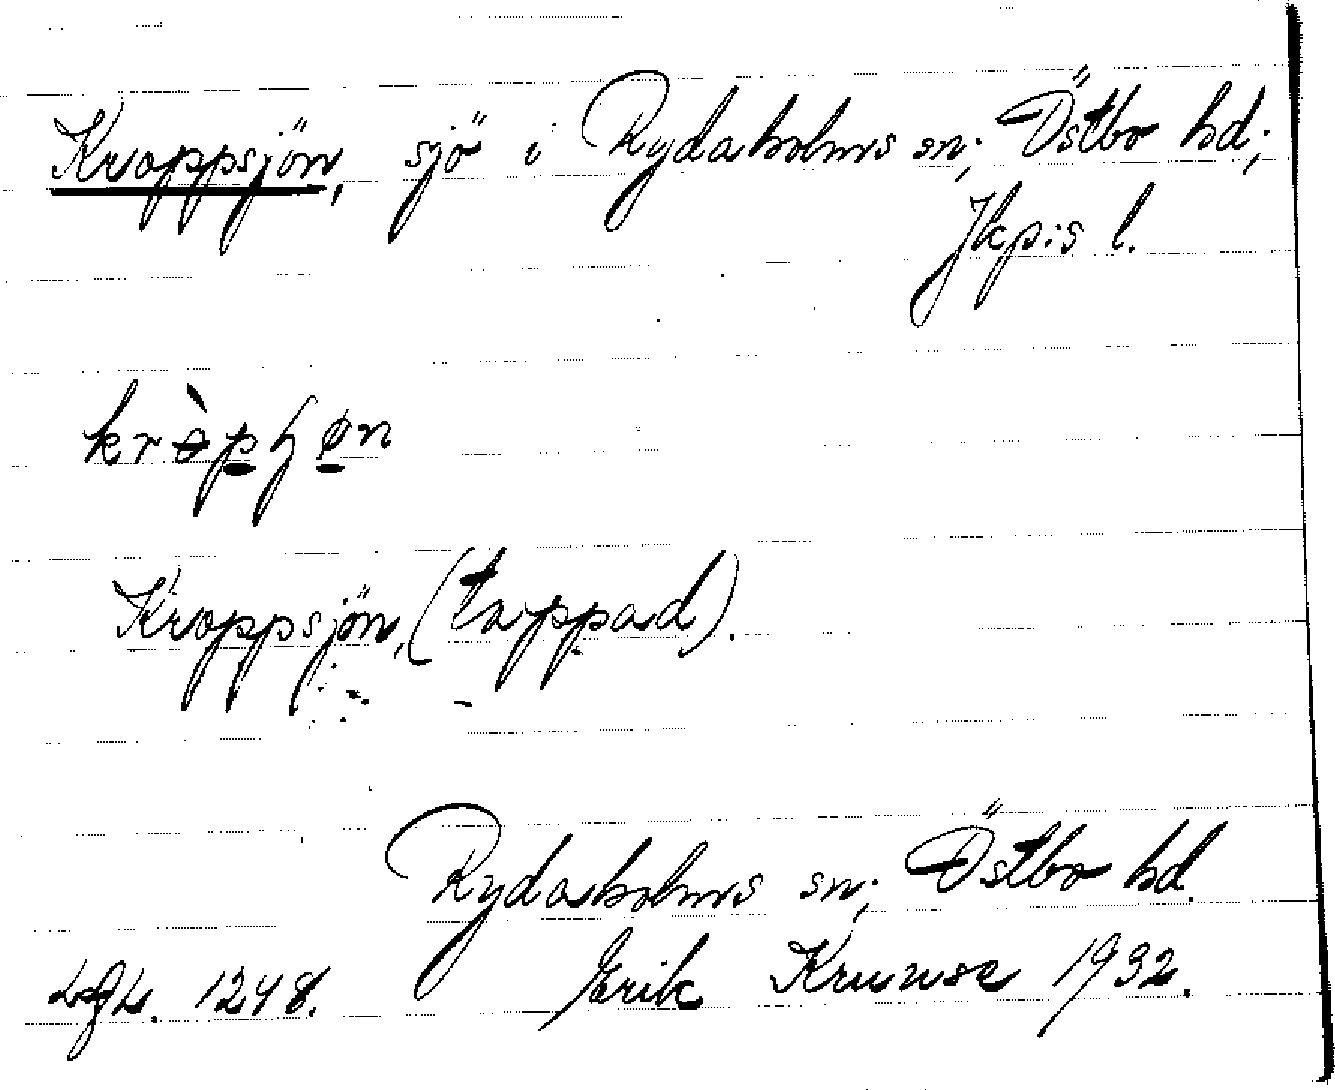 Kroppsjön, sjö i Rydaholms sn; Östbo hd;
Jkp:s l.
kròpʃøn
Kroppsjön, (tappad).
Rydaholms sn; Östbo hd.
1248. Erik Kruuse 1932.